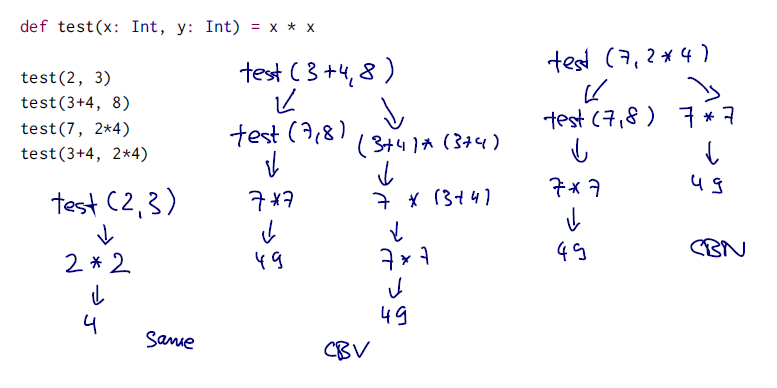 def test(x: Int, y: Int) = x * x
test(2, 3)
test(3+4, 8)
test(7, 2*4)
test(3+4, 2*4)
test (2,3)
2 * 2
4
Same
test (3+4, 8)
test (7,8) (3+4) * (3+4)
7 * 7 7 * (3+4)
49 7 * 7
49
CBV
test (7, 2*4)
test (7,8) 7 * 7
7 * 7 49
49
CBN